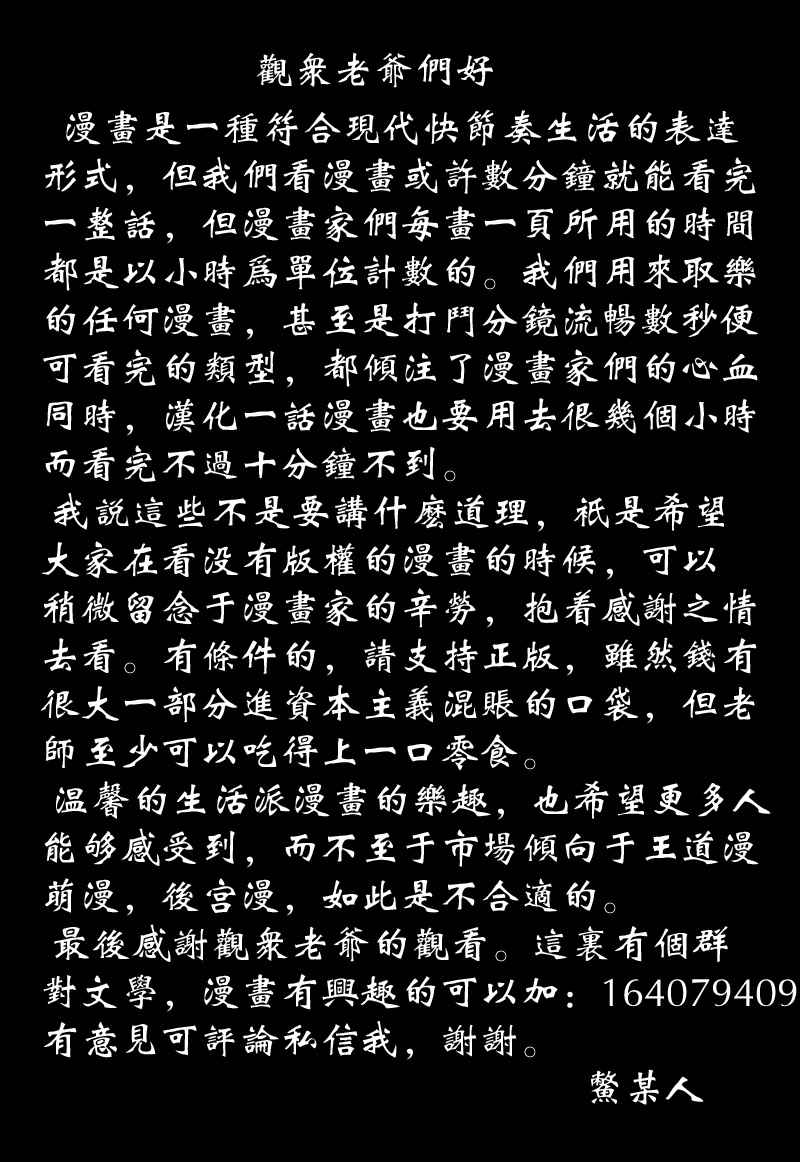 觀衆老爺們好
漫畫是一種符合現代快節奏生活的表達
形式，但我們看漫畫或許數分鐘就能看完
一整話，但漫畫家們每畫一頁所用的時間
都是以小時爲單位計數的。我們用來取樂
的任何漫畫，甚至是打鬥分鏡流暢數秒便
可看完的類型，都傾注了漫畫家們的心血
同時，漢化一話漫畫也要用去很幾個小時
而看完不過十分鐘不到。
我説這些不是要講什麽道理，衹是希望
大家在看没有版權的漫畫的時候，可以
稍微留念于漫畫家的辛勞，抱着感謝之情
去看。有條件的，請支持正版，雖然錢有
很大一部分進資本主義混賬的口袋，但老
師至少可以吃得上一口零食。
温馨的生活派漫畫的樂趣，也希望更多人
能够感受到，而不至于市場傾向于王道漫
萌漫，後宫漫，如此是不合適的。
最後感謝觀衆老爺的觀看。這裏有個群
對文學，漫畫有興趣的可以加：164079409
有意見可評論私信我，謝謝。
鱉某人